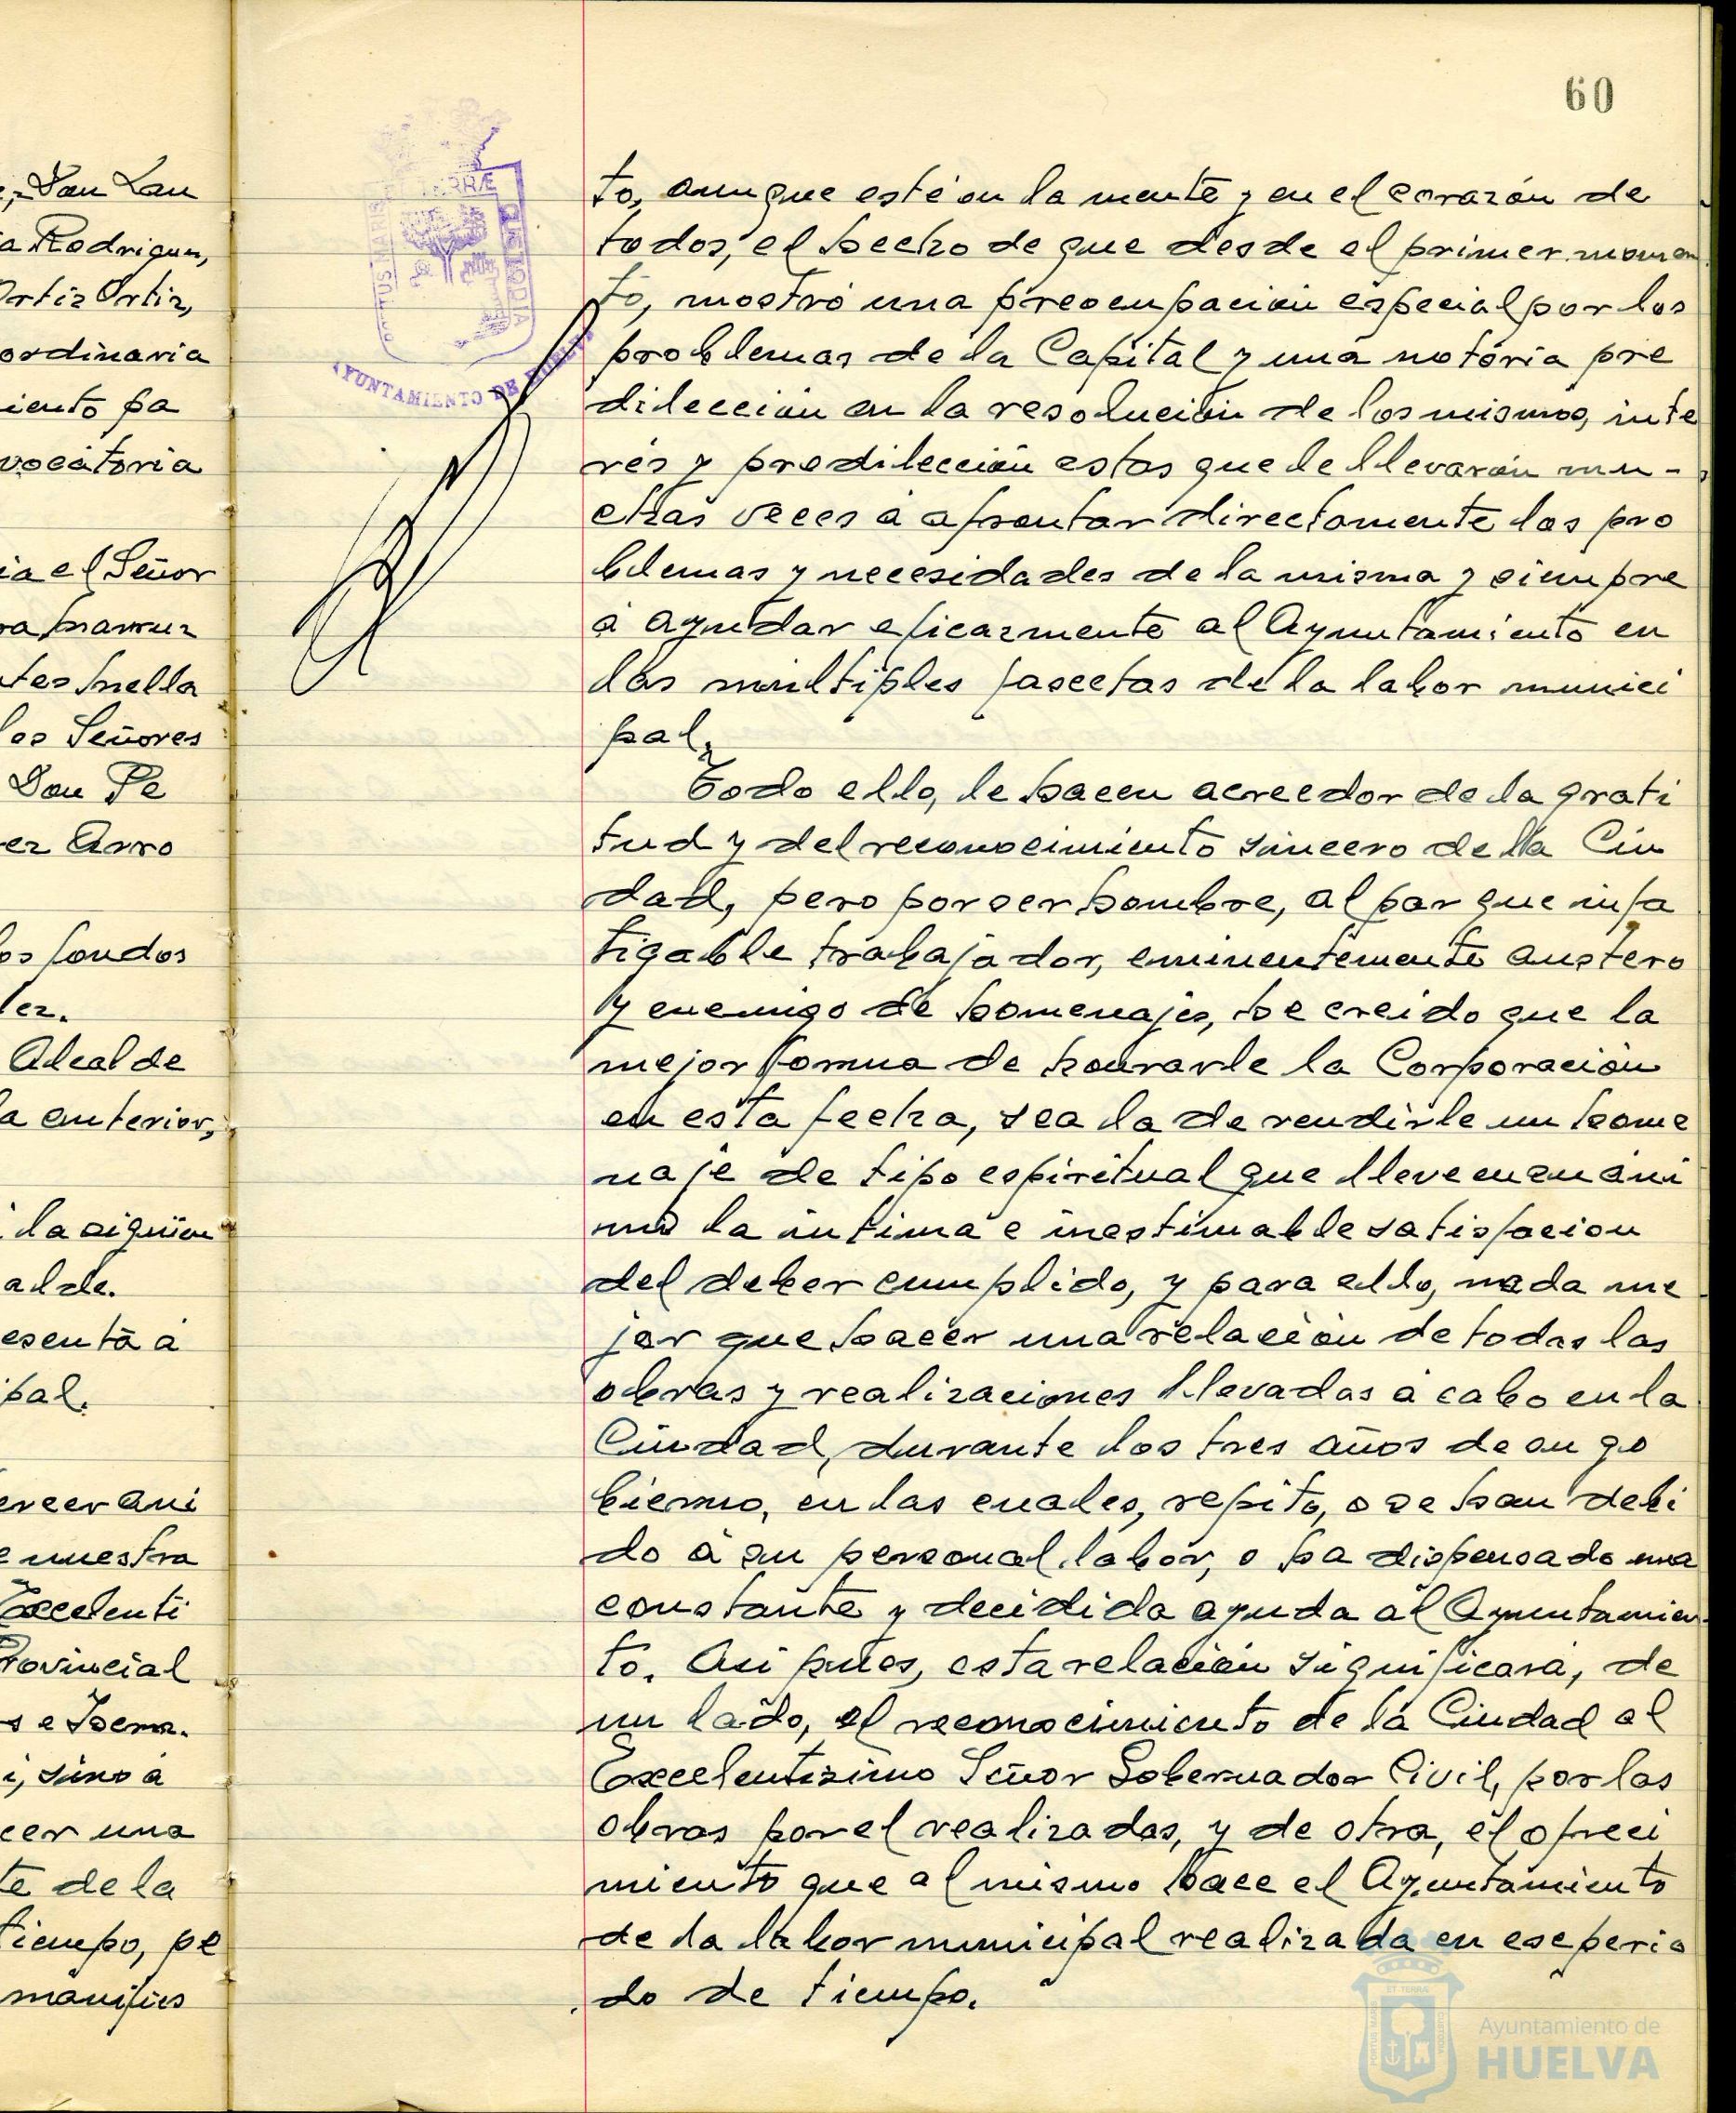 60
e, Don Lau
a Rodriguez,
Ortiz Ortiz,
ordinaria
iento pa
vocatoria
ia el Señor
tes Suella
los Señores
Don Pe
ez Arro
os fondos
lez.
Alcalde
a anterior,
la siguien
alde.
esenta á
ipal.
ercer ani
e nuestra
Excelenti
Provincial
i, sino á
cer una
te de la
tiempo, pe
manifies
PORTUS MARIS ET TERRÆ CUSTODIA
AYUNTAMIENTO DE HUELVA
to, aunque esté en la mente y en el corazón de
todos, el hecho de que desde el primer momen
to, mostró una preocupación especial por los
problemas de la Capital y una notoria pre
dilección en la resolución de los mismos, inte
rés y predilección estos que le llevarón mu-
chas veces á afrontar directamente los pro
blemas y necesidades de la misma y siempre
á ayudar eficazmente al Ayuntamiento en
las múltiples fascetas de la labor munici
pal.
Todo ello, le hacen acreedor de la grati
tud y del reconocimiento sincero de la Ciu
dad, pero por ser hombre, al par que infa
tigable trabajador, eminentemente austero
y enemigo de homenajes, he creido que la
mejor forma de honrarle la Corporación
en esta fecha, sea la de rendirle un home
naje de tipo espiritual que lleve en su áni
mo la intima e inestimable satisfacion
del deber cumplido, y para ello, nada me
jor que hacer una relación de todas las
obras y realizaciones llevadas á cabo en la
Ciudad, durante los tres años de su go
bierno, en las cuales, repito, o se han debi
do á su personal labor, o ha dispensado una
constante y decidida ayuda al Ayuntamien
to. Asi pues, esta relación significará, de
un lado, el reconocimiento de la Ciudad al
Excelentisimo Señor Gobernador Civil, por las
obras por el realizadas, y de otra, el ofreci
miento que al mismo hace el Ayuntamiento
de la labor municipal realizada en ese perio
do de tiempo.
Ayuntamiento de
HUELVA